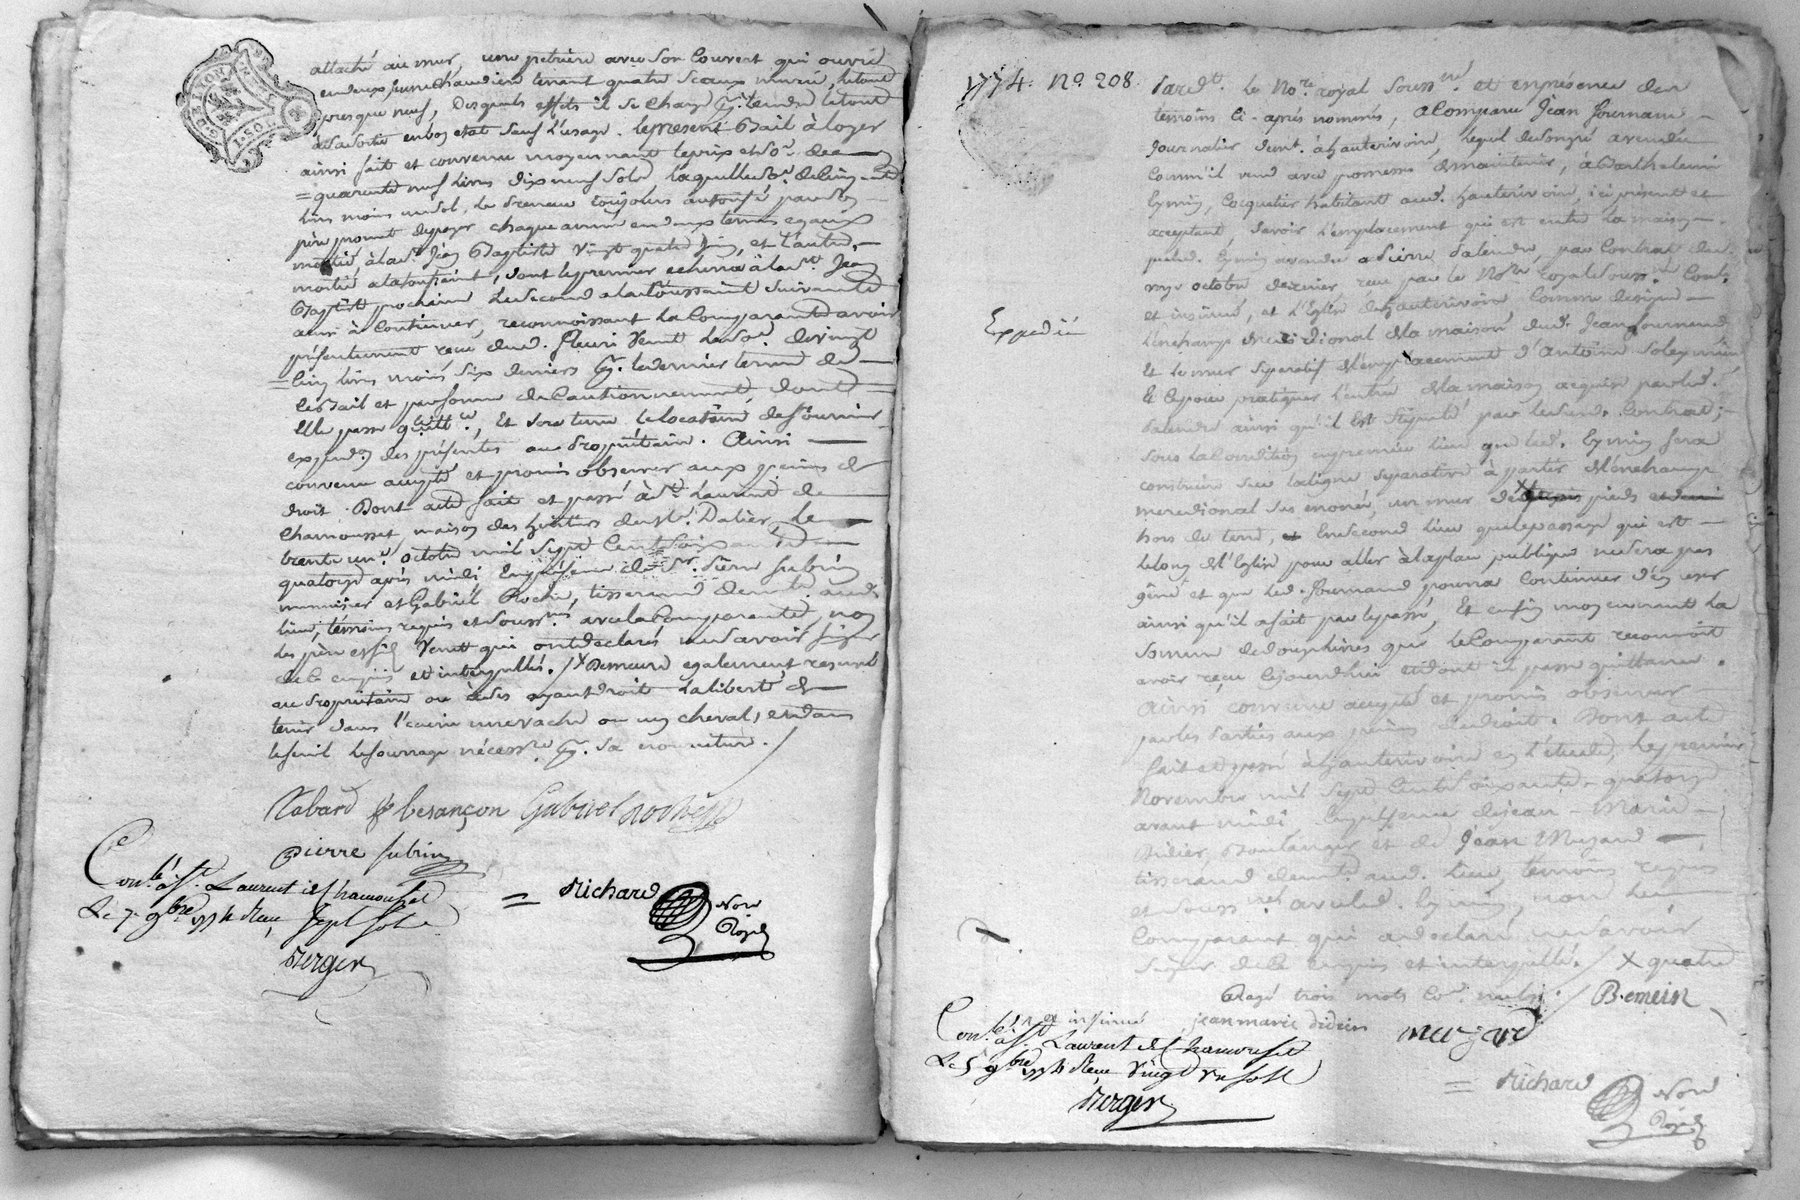 attaché au mur, une petriere avec son couvert qui ouvre
en deux, une chaudiere tenant quatre sceaux, le tout
presque neuf, desquels effets il se charge pr. rendre le tout
à sa sortie en bon etat sauf l'usage. le present Bail à loyer
ainsi fait et convenu moyennant le prix et so.e de
= quarente neuf livres dix neuf sols laquelle so.e de
livres moins un sol, le preneur toujours autorisé par son
pere promet de payer chaque année en deux termes egaux
moitié à la st. Jean Baptiste vingt quatre juin, et l'autre
moitié a la toussaint, dont le premier echerra à la st. Jean
Baptiste prochaine le second a la Toussaint suivante
ainsi à continuer, reconnoissant la comparante avoir
présentement reçu dud. fleuri Venet la so.e de vingt
= cinq livres moins six deniers pr. le dernier terme de
ce Bail et par forme de cautionnement, dont
elle passe quitt.ce, Et sera tenu le locataire de fournir
exped.on des présentes au propriétaire. Ainsi
convenu accepté et promis observer aux peines de
droit. Dont acte fait et passé à St. Laurent de
Chamousset, maison des heritiers du sr. Dalier, le
trente un.e octobre mil sept cent soixante
quatorze après midi En présence de Sr. Pierre subrin
menuisier et Gabriel Roche, tisserand dem.t aud.
lieu, témoins requis et souss.nés avec la comparante, non
les père et fils Venet qui ont declarés ne savoir signer
de ce enquis et interpellés. /X Demeure egalement reservé
au propriétaire ou à ses ayant droit la liberté de
tenir dans l'ecurie une vache ou un cheval, et dans
le fenil le fourrage nécess.re pr. sa nourriture. /
Nabard fe besançon Gabriel rochess
Pierre subrin
Conlé. à St. Laurent de Chamousset
Le 7. 9bre 1774 Reçu sept sols
Berger
= Richard Nore Royal
1774. No. 208.
Pard.t le No.re royal souss.né et en présence des
temoins ci-après nommés, a Comparu Jean fournand
Journalier dem.t à hauterivoire, lequel de son gré a vendu
comm'il vend avec promesse de maintenir, à Barthelemi
Eymin, Cocquetier habitant aud. hauterivoire, ici présent et
acceptant, savoir l'emplacement qui est entre la maison
que led. Eymin a vendu a Pierre Salendre, par contrat du
onze octobre dernier reçu par le No.re Royal souss.né Conlé.
et insinué, et l'Eglise de hauterivoire comme designe
l'enchampe meridional de la maison dud. Jean fournand
Et le mur séparatif de l'emplacement d'Antoine
Et l'espace pratiquer l'entrée de la maison acquise par led.
Salendre ainsi qu'il Est stipulé par le susd. contrat;
sous la condition en premier lieu que led. Eymin fera
construire sur la ligne séparative à partir de l'enchampe
meridional sus enoncé, un mur de X pieds
hors de terre, et En second lieu que le passage qui est
le long de l'Eglise pour aller à la place publique ne sera pas
gêné et que led. fournand pourra continuer d'en user
ainsi qu'il a fait par le passé, Et enfin moyennant la
somme de douze livres que le Comparant reconnoit
avoir reçu cejourd'hui et dont il passe quittance.
Ainsi convenu accepté et promis observer
par les Parties aux peines de droit. Dont acte
fait et passé à hauterivoire en l'étude, le premier
Novembre mil sept cent soixante-quatorze
avant midi En présence de jean-Marie
Didier, Boulanger et de Jean Muzard
tisserand dem.t aud. lieu, temoins requis
et souss.nés avec led. Eymin, non le
comparant qui a declaré ne savoir
signer de ce enquis et interpellé. / X quatre
Rayé trois mots co.e nuls. / B. emein
Expedié
jean marie didier muzard
Conlé. et insinué
à St. Laurent de Chamousset
Le 5 9bre 1774 Reçu Vingt Un sols
Berger
= Richard Nore Royal